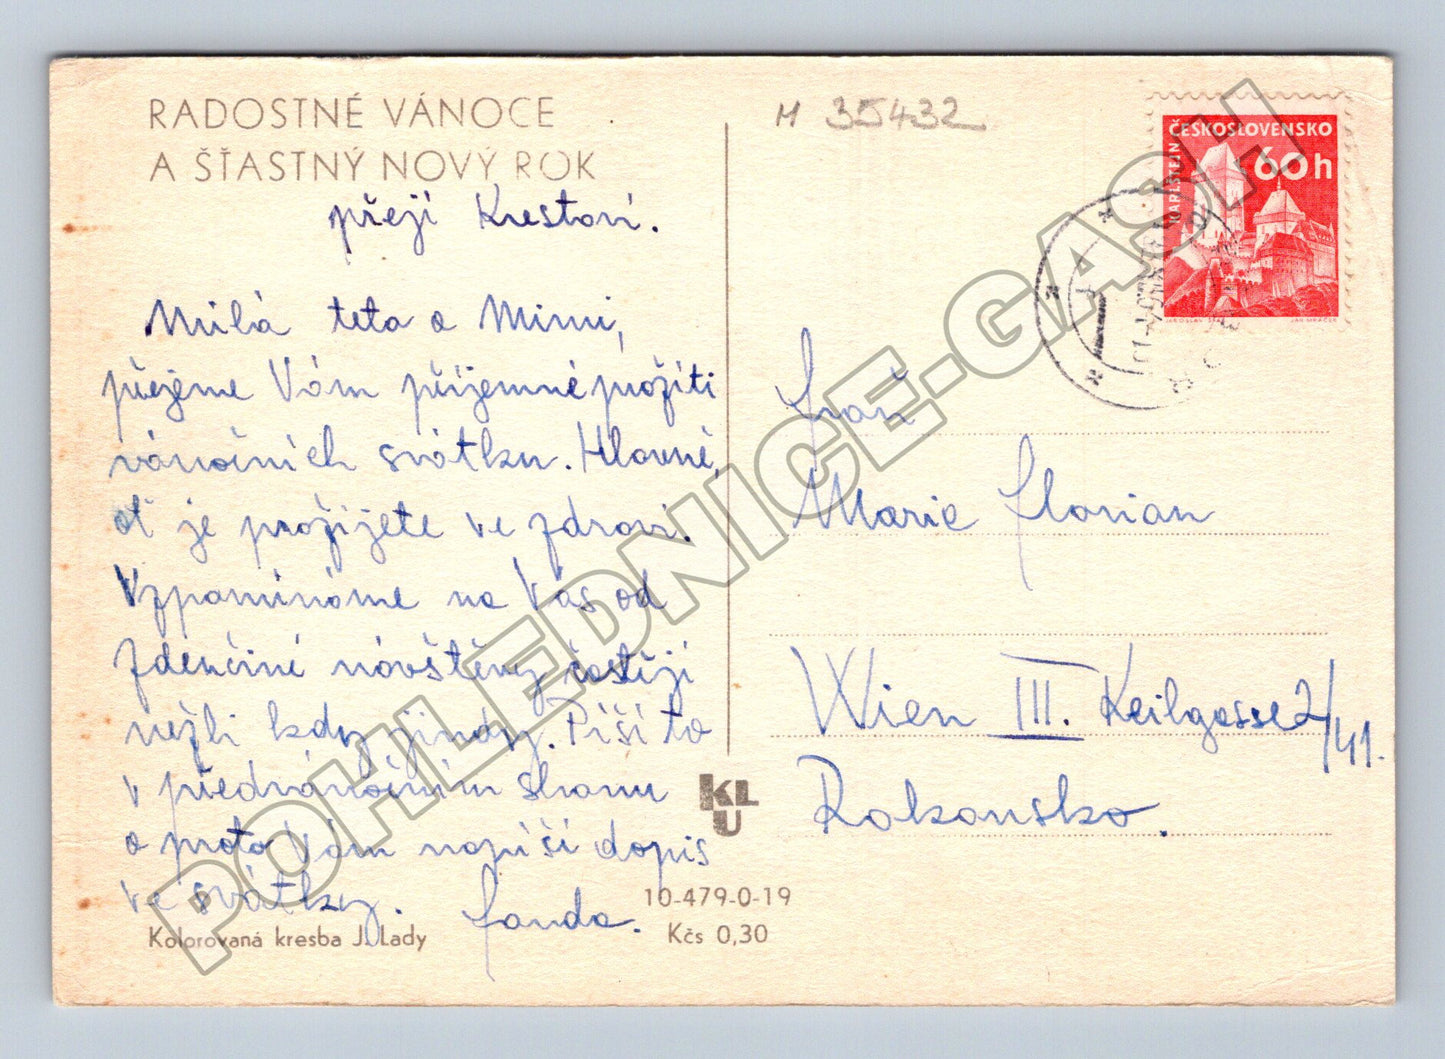 RADOSTNÉ VÁNOCE
A ŠŤASTNÝ NOVÝ ROK
přejí Krestovi.
Milá teta a Mimi,
přejeme Vám příjemné prožití
vánočních svátku. Hlavně,
ať je prožijete ve zdraví.
Vzpomínáme na Vás od
Zdenčiné návštěvy častěji
nežli kdy jindy. Píši to
v předvánočním shonu
a proto Vám napíši dopis
ve svátky. Fanda.
Kolorovaná kresba J. Lady
10-479-0-19
Kčs 0,30
KLU
M 35432
ČESKOSLOVENSKO
60h
KARLŠTEJN
JAN MRÁČEK
Marie Florian
Wien III. Keilgasse 2/41.
Rakousko.
POHLEDNICE-GASH